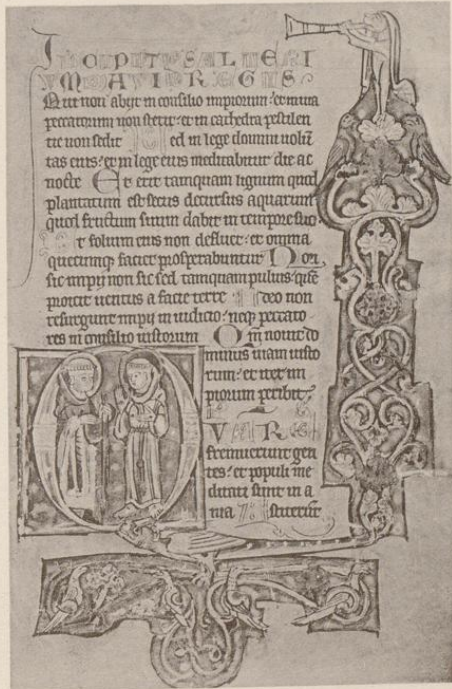 INCIPIT PSALTERI
VM DAVID REGIS
Qui non abijt in consilio impiorum et in uia
peccatorum non stetit et in cathedra pestilen
tie non sedit Sed in lege domini uolū
tas eius et in lege eius meditabitur die ac
nocte Et erit tamquam lignum quod
plantatum est secus decursus aquarum
quod fructum suum dabit in tempore suo
Et folium eius non defluet et omnia
quecumq faciet prosperabuntur Non
sic impij non sic sed tamquam puluis quē
proicit uentus a facie terre Ideo non
resurgunt impij in iudicio neq peccato
res in consilio iustorum Qm̄ nouit do
minus uiam iusto
rum et iter im
piorum peribit
VARE
fremuerunt gen
tes et populi me
ditati sunt in a
nia Astiterūt